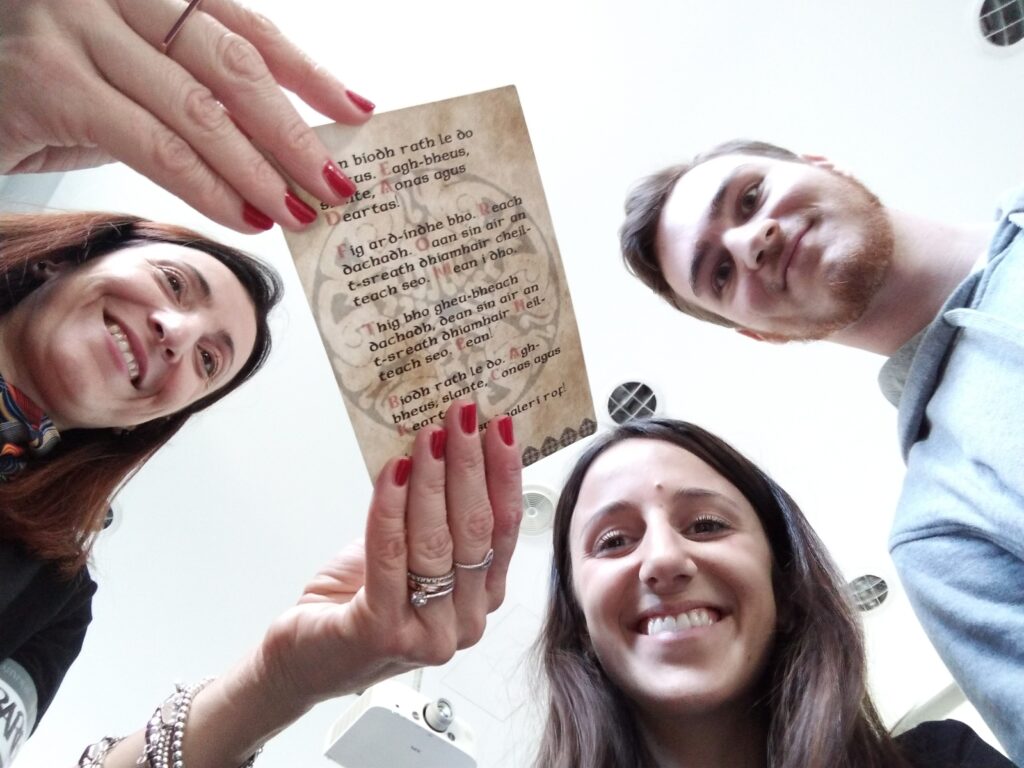 n biodh rath le do
us. Eagh-bheus,
slante, Aonas agus
Deartas!
Fig ar d-indhe bho. Reach
dachadh. Oaan sin air an
t-sreath dhiamhair cheil-
teach seo. Mean i dho.
Thig bho gheu-bheach
dachadh, dean sin air an
t-sreath dhiamhair Neil-
teach seo. Lean!
Biodh rath le do. Agh-
bheus, slante, Conas agus
Keart
aler i rof!
BAH